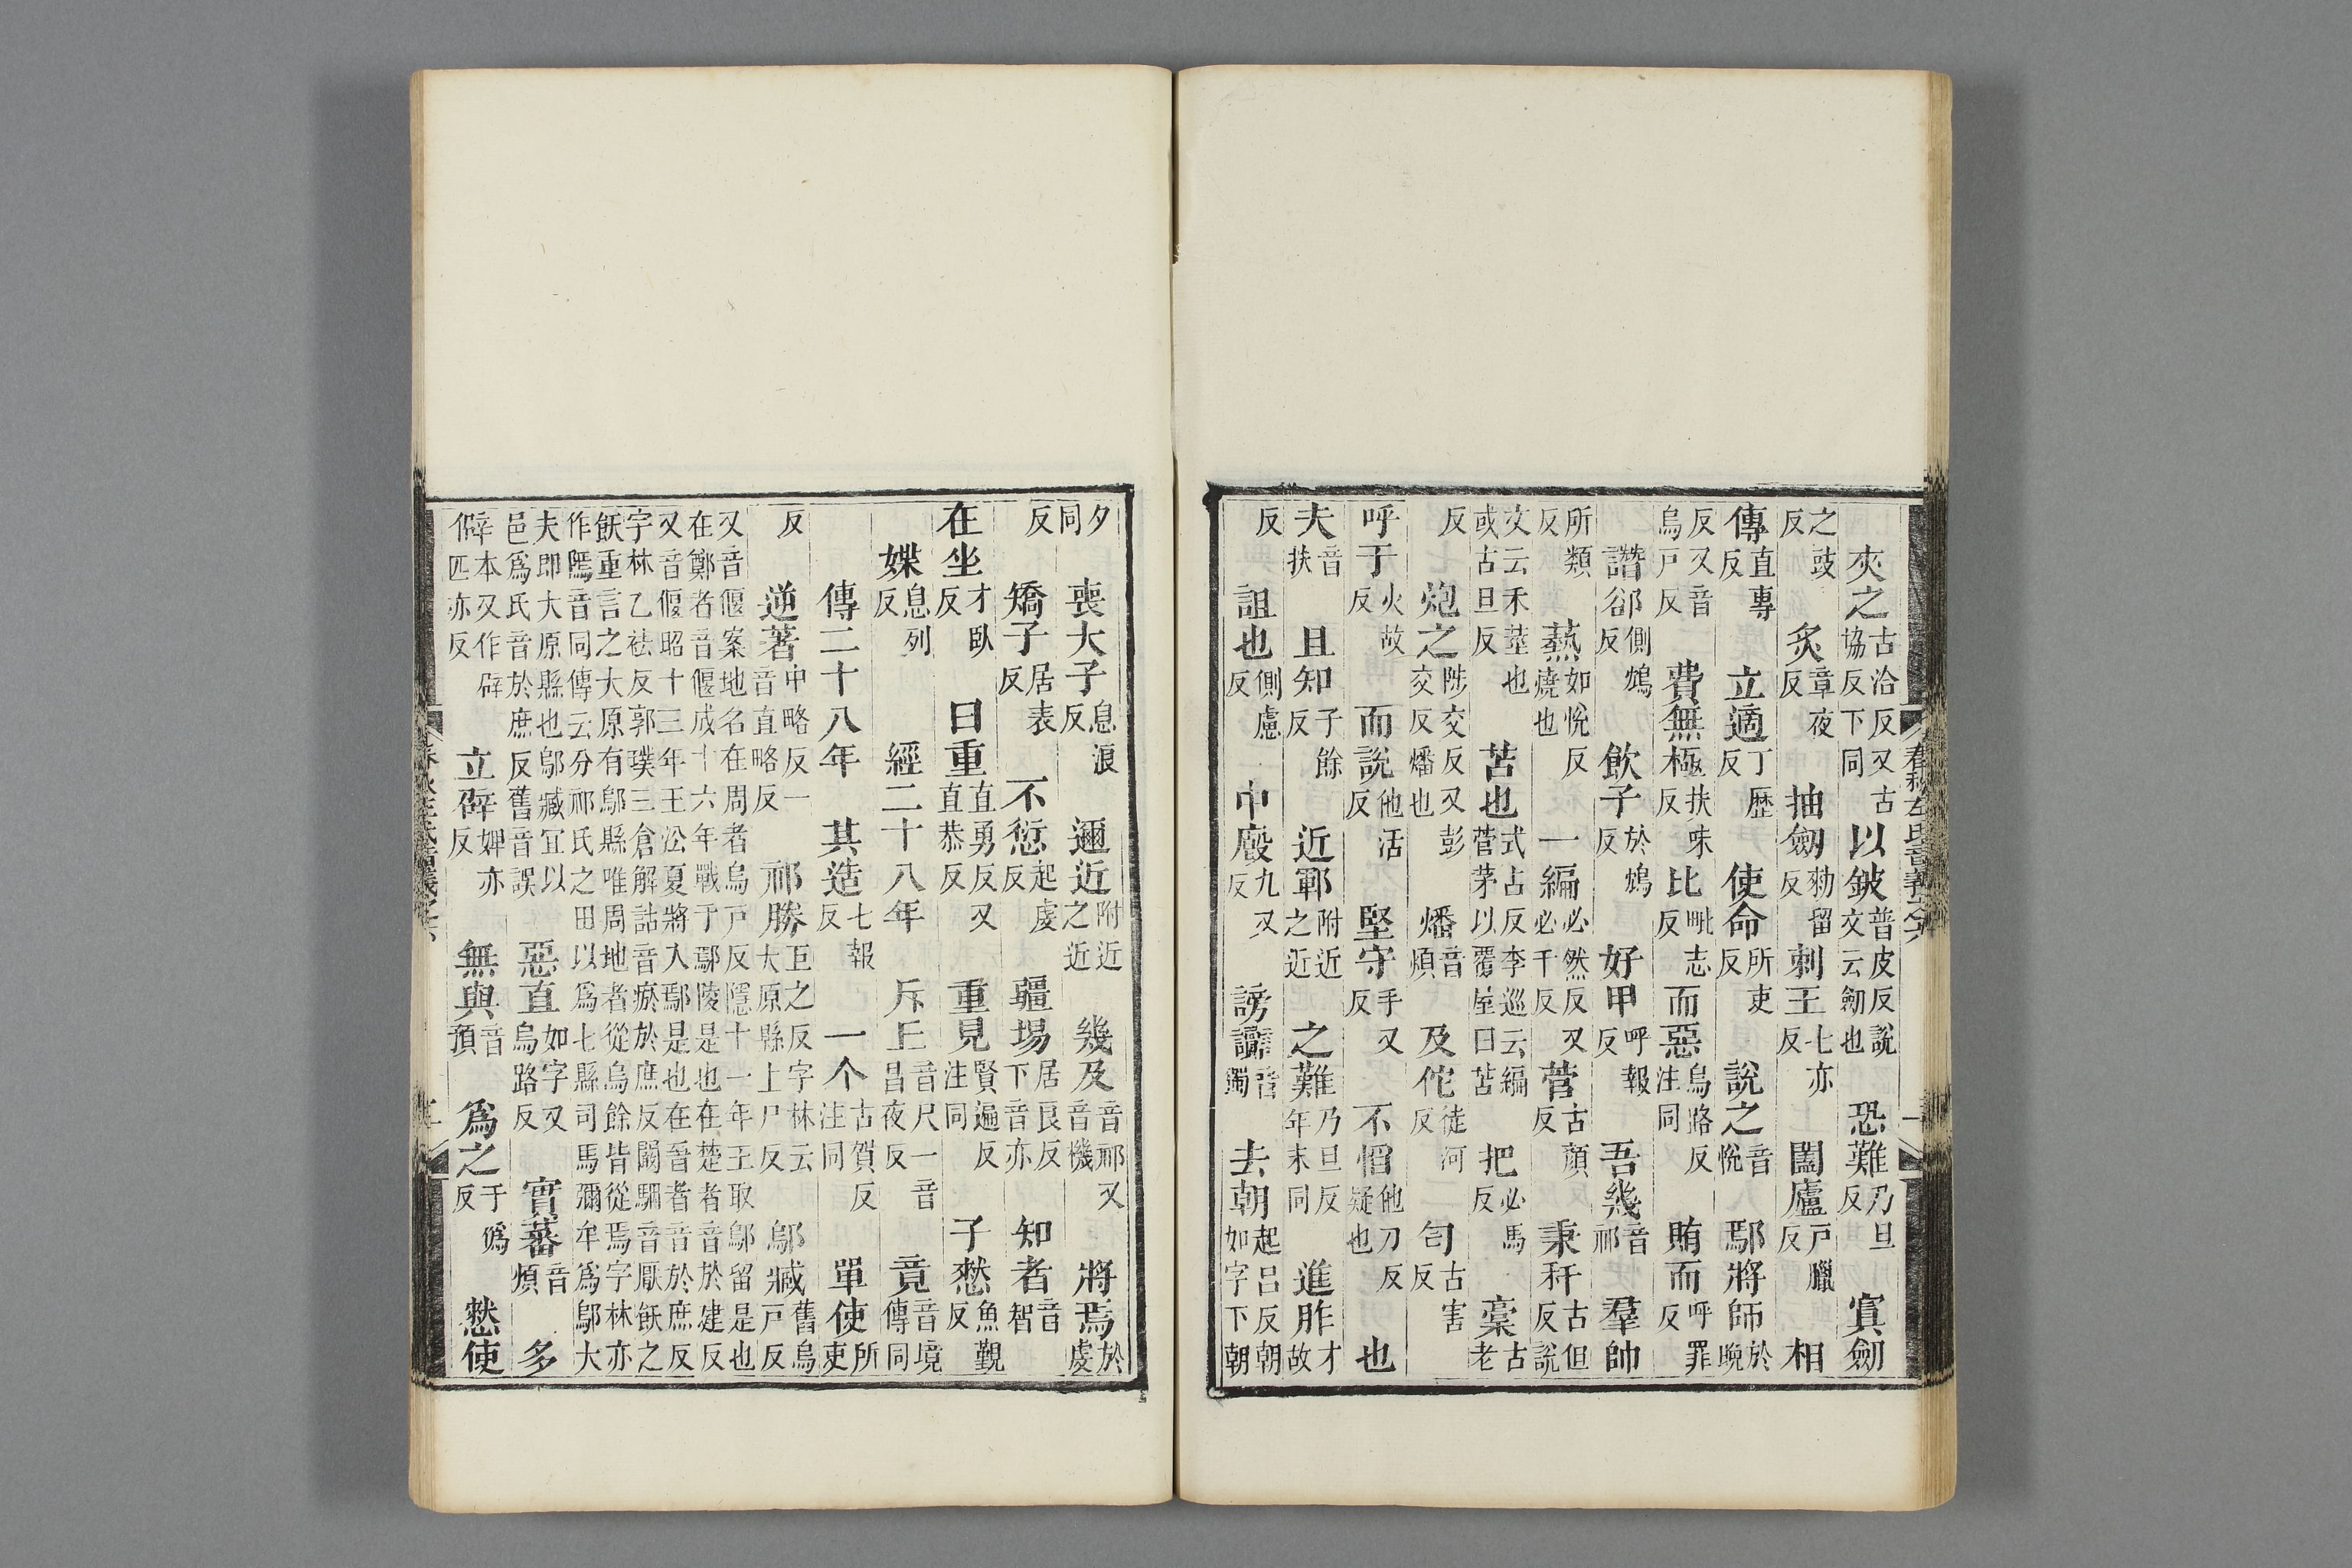 夾之古洽反又古協反下同以鈹普皮反說文云劔也恐難乃旦反寘劔
之豉反炙章夜反抽劔勑留反刺王七亦反闔廬戶臘反相
傳直專反立適丁歷反使命所吏反說之音悅鄢將師於晚
反又音烏戶反費無極扶味反比毗志反而惡烏路反注同賄而呼罪反
譖郤側鴆反飲子於鴆反好甲呼報反吾幾音祁羣帥
所類反爇如悅反燒也一編必然反又必千反菅古顏反秉秆古但反說
文云禾莖也或古旦反苫也式占反李巡云編菅茅以覆屋曰苫把必馬反稾古老
反炮之陟交反又彭交反燔也燔音煩及佗徒河反匄古害反
呼于火故反而說他活反堅守手又反不慆他刀反疑也也
夫音扶且知子餘反近鄆附近之近之難乃旦反年末同進胙才故
反詛也側慮反中廏九又反謗讟音獨去朝起呂反朝如字下朝
春秋左氏音義之六
夕同喪大子息浪反邇近附近之近幾及音祁又音機將焉於虔
反矯子居表反不愆起虔反疆埸居良反下音亦知者音智
在坐才臥反曰重直勇反又直恭反重見賢遍反注同子憖魚覲反
媟息列反經二十八年斥上音尺一音昌夜反竟音境傳同
傳二十八年其造七報反一个古賀反注同單使所吏
反逆著中略反一音直略反祁勝巨之反字林云大原縣上尸反鄔臧舊烏戶反
又音偃案地名在周者烏戶反隱十一年王取鄔留是也在鄭者音偃成十六年戰于鄢陵是也在楚者音於建反
又音偃昭十三年王㳂夏將入鄢是也在晉者音於庶反字林乙袪反郭璞三倉解詁音瘀於庶反闞駰音厭飫之
飫重言之大原有鄔縣唯周地者從烏餘皆從焉字林亦作隖音同傳云分祁氏之田以爲七縣司馬彌牟爲鄔大
夫即大原縣也鄔臧宜以邑爲氏音於庶反舊音誤惡直如字又烏路反實蕃音煩多
辟本又作辟僻匹亦反立辟婢亦反無與音預爲之于僞反憖使
春秋左氏音義之六